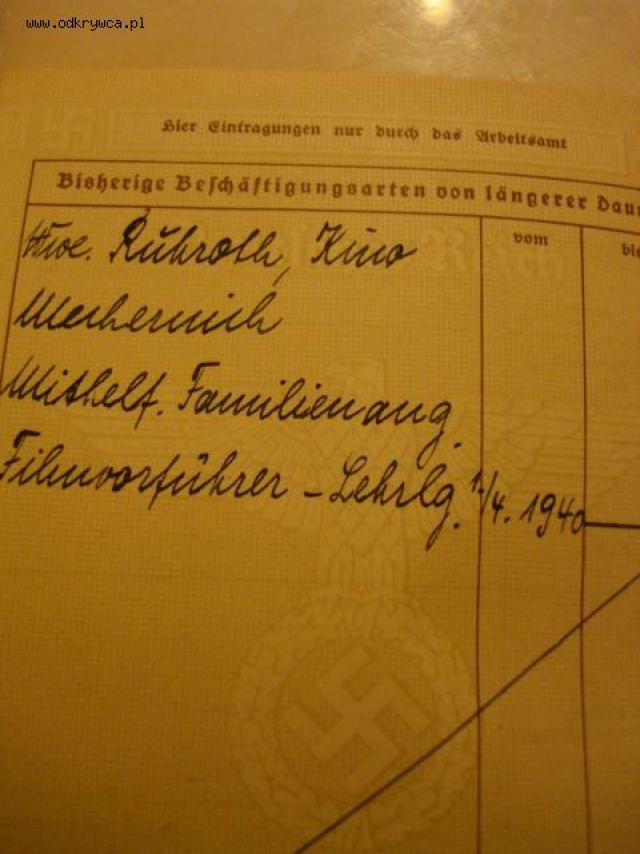 www.odkrywca.pl
Hier Eintragungen nur durch das Arbeitsamt
Bisherige Beschäftigungsarten von längerer Dau
vom
bis
Wwe. Ruhroth, Kino
Mechernich
Mithelf. Familienang.
Filmvorführer - Lehrlg. 1./4. 1940